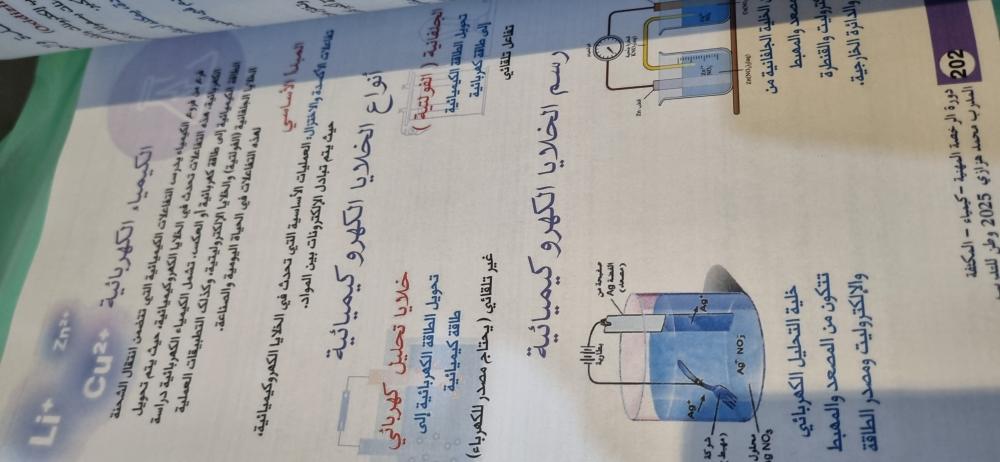 Li⁺
Zn²⁺
Cu²⁺
الكيمياء الكهربائية
فرع من فروع الكيمياء يدرس التفاعلات الكيميائية التي تتضمن انتقال الشحنة
الكهربائية. هذه التفاعلات تحدث في الخلايا الكهروكيميائية، حيث يتم تحويل
الطاقة الكيميائية إلى طاقة كهربائية أو العكس. تشمل الكيمياء الكهربائية دراسة
الخلايا الجلفانية (الفولتية) والخلايا الإلكتروليتية، وكذلك التطبيقات العملية
لهذه التفاعلات في الحياة اليومية والصناعة.
المبدأ الأساسي
تفاعلات الأكسدة والاختزال: العمليات الأساسية التي تحدث في الخلايا الكهروكيميائية،
حيث يتم تبادل الإلكترونات بين المواد.
أنواع الخلايا الكهروكيميائية
الجلفانية ( الفولتية )
تحويل الطاقة الكيميائية
إلى طاقة كهربائية
تفاعل تلقائي
خلايا تحليل كهربائي
تحويل الطاقة الكهربائية إلى
طاقة كيميائية
غير تلقائي ( يحتاج مصدر للكهرباء)
رسم الخلايا الكهروكيميائية
قطب Zn
Zn²⁺
NO₃⁻
Zn(NO₃)₂(aq)
الخلية الجلفانية من
المصعد والمهبط
والقنطرة
والدائرة الخارجية.
بطارية
صفيحة من
الفضة Ag
(مصعد)
Ag⁺
Ag⁺
Ag⁺ NO₃⁻
شوكة
(مهبط)
محلول
خلية التحليل الكهربائي
تتكون من المصعد والمهبط
والإلكتروليت ومصدر الطاقة
202
دورة الرخصة المهنية - كيمياء - المكثفة
المدرب محمد هزازي 2025